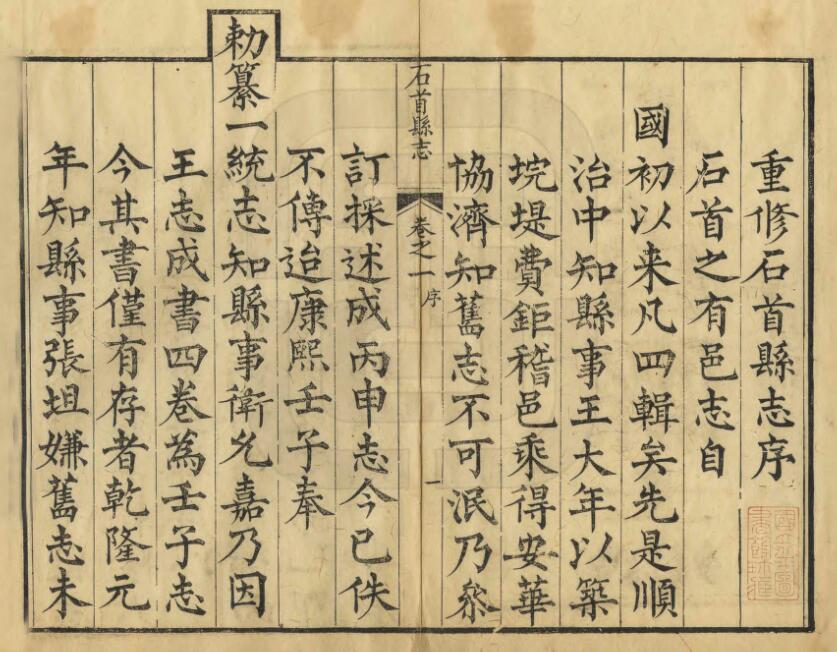 重修石首縣志序
石首之有邑志自
國初以来凡四輯矣先是順
治中知縣事王大年以築
垸堤費鉅稽邑乘得安華
協濟知舊志不可泯乃叅
石首縣志
卷之一
序
一
訂採述成丙申志今已佚
不傳迨康熙壬子奉
勅纂一統志知縣事衛允嘉乃因
王志成書四卷為壬子志
今其書僅有存者乾隆元
年知縣事張坦嫌舊志未